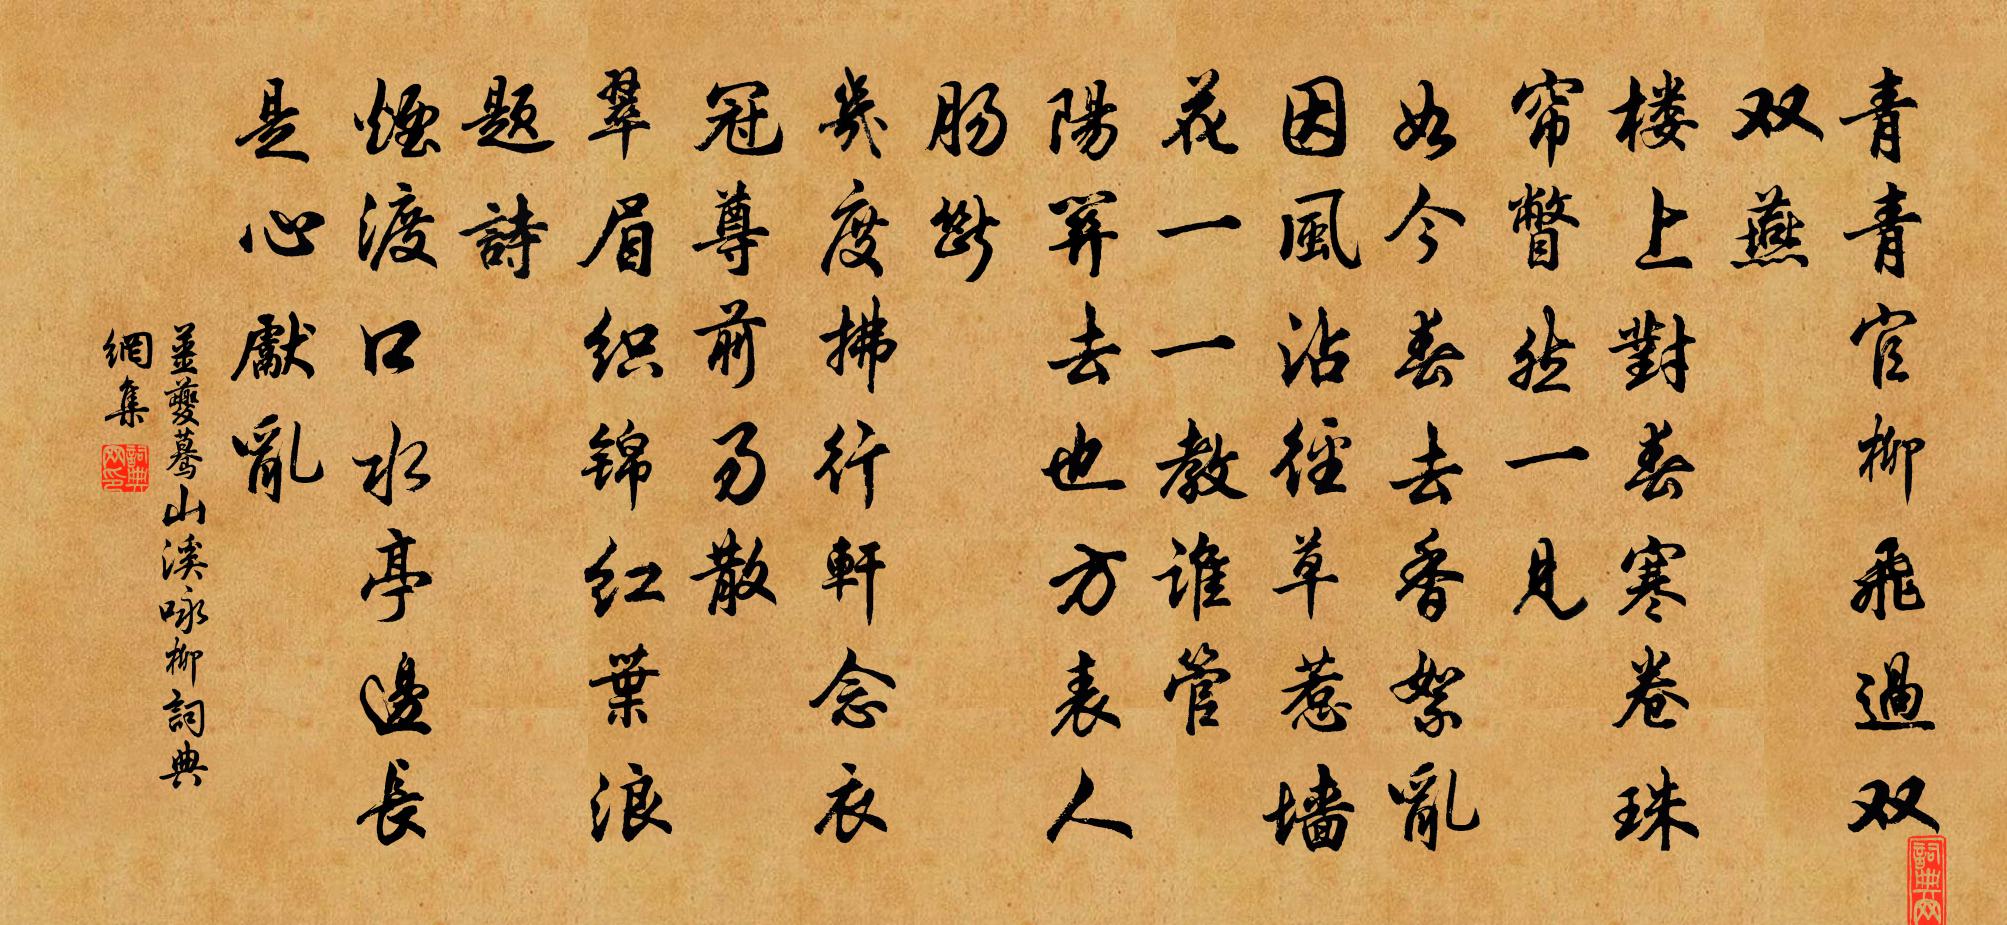 青青官柳飛過双
双燕
楼上對春寒卷珠
帘瞥然一見
如今春去香絮亂
因風沾徑草惹墙
花一一教谁管
陽関去也方表人
肠斷
幾度拂行軒念衣
冠尊前易散
翠眉织锦红葉浪
题詩
煙渡口水亭邊長
是心獻亂
姜夔驀山溪咏柳詞典
網集